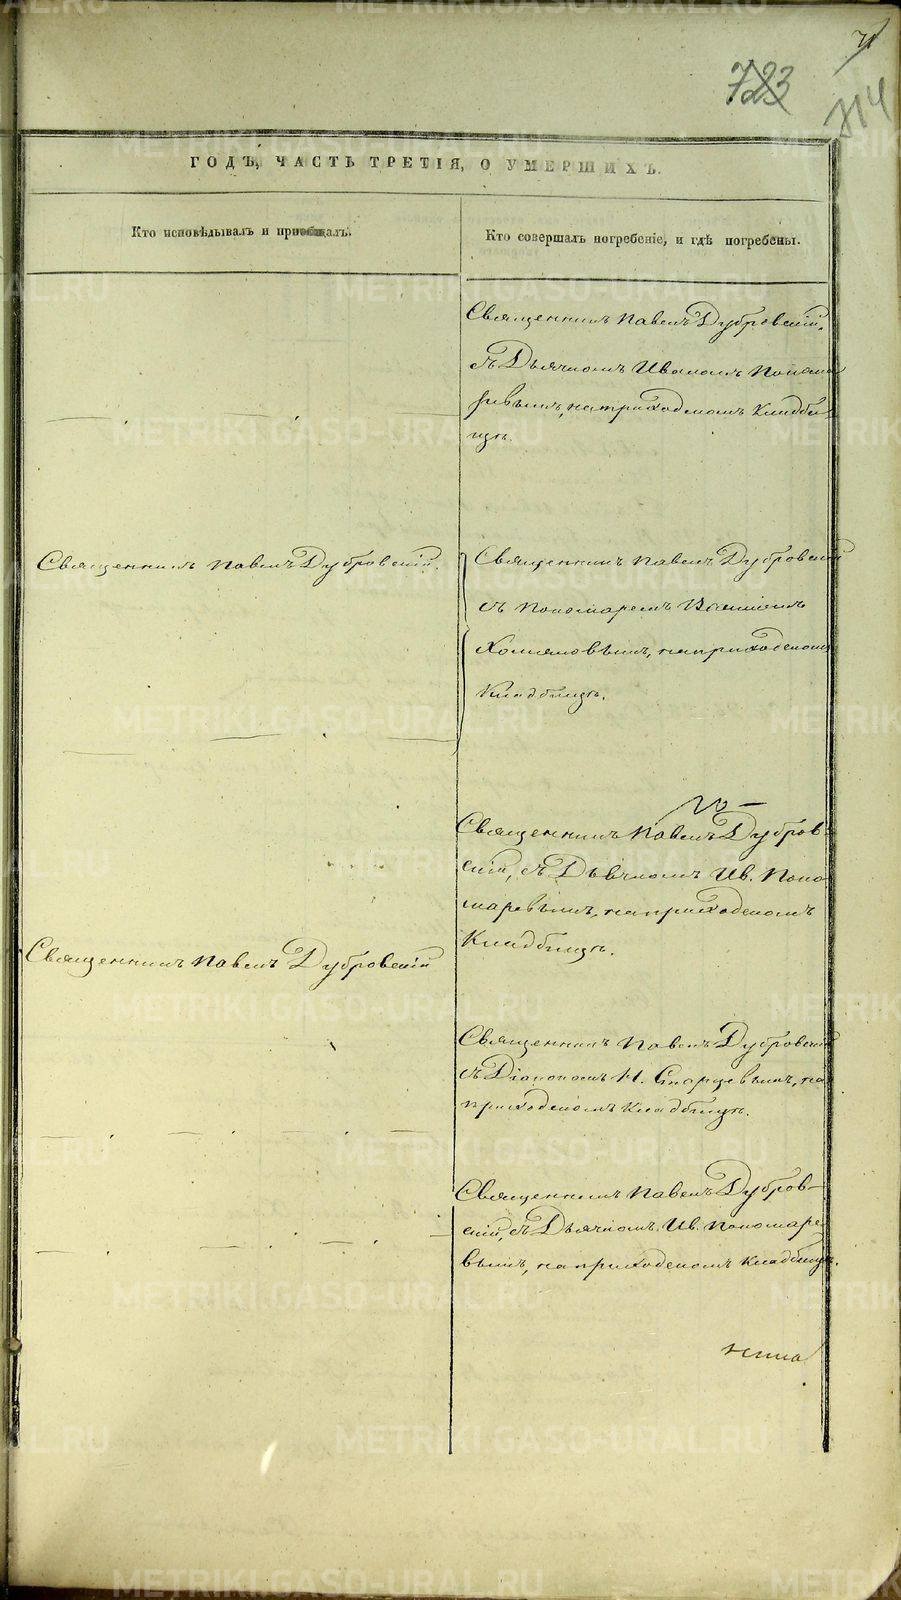 723
714
ГОДЪ, ЧАСТЬ ТРЕТІЯ, О УМЕРШИХЪ.
Кто исповѣдывалъ и пріобщалъ.
Кто совершалъ погребеніе, и гдѣ погребены.
Священникъ Павелъ Дубровскій,
съ Дьячкомъ Иваномъ Понома
ревымъ, на приходскомъ Кладби
щѣ.
Священникъ Павелъ Дубровскій.
Священникъ Павелъ Дубровскій
съ Пономаремъ
Хомяковымъ, на приходскомъ
Кладбищѣ.
Священникъ Павелъ Дубров-
скій, съ Дьячкомъ Ив. Поно
маревымъ, на приходскомъ
Кладбищѣ.
Священникъ Павелъ Дубровскій
Священникъ Павелъ Дубровскій
съ Діакономъ Н. Старцевымъ, на
приходскомъ Кладбищѣ.
Священникъ Павелъ Дубров-
скій, съ Дьячкомъ Ив. Пономаре
вымъ, на приходскомъ Кладбищѣ.
METRIKI.GASO-URAL.RU